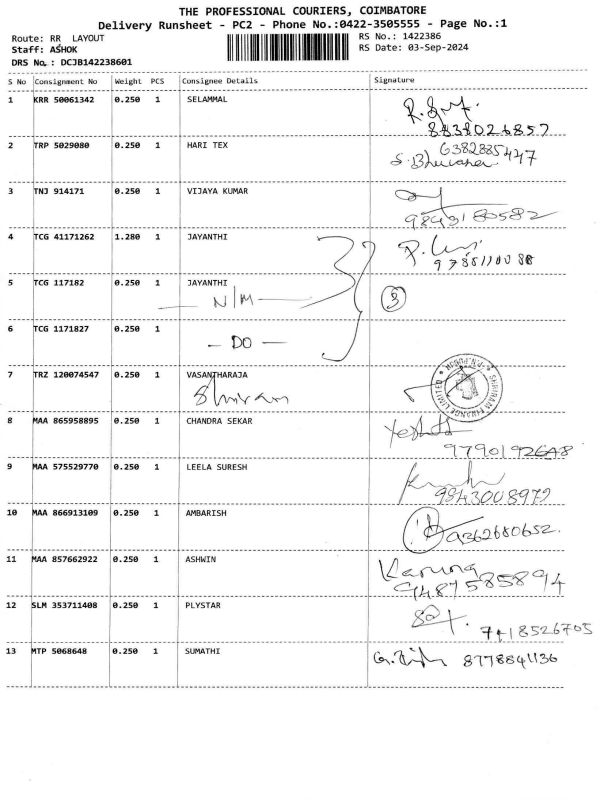 THE PROFESSIONAL COURIERS, COIMBATORE
Delivery Runsheet - PC2 - Phone No.:0422-3505555 - Page No.:1
Route: RR LAYOUT
RS No.: 1422386
Staff: ASHOK
RS Date: 03-Sep-2024
DRS No. : DCJB142238601
S No Consignment No Weight PCS Consignee Details Signature
1 KRR 50061342 0.250 1 SELAMMAL
8838026857
2 TRP 5029080 0.250 1 HARI TEX
6382885447
3 TNJ 914171 0.250 1 VIJAYA KUMAR
9843180582
4 TCG 41171262 1.280 1 JAYANTHI
5 TCG 117182 0.250 1 JAYANTHI
N/M
3
6 TCG 1171827 0.250 1
DO
7 TRZ 120074547 0.250 1 VASANTHARAJA
Shriram
SHRIRAM FINANCE LIMITED
8 MAA 865958895 0.250 1 CHANDRA SEKAR
9790192648
9 MAA 575529770 0.250 1 LEELA SURESH
9843008972
10 MAA 866913109 0.250 1 AMBARISH
9362680652.
11 MAA 857662922 0.250 1 ASHWIN
Karuna
9487585894
12 SLM 353711408 0.250 1 PLYSTAR
7418526705
13 MTP 5068648 0.250 1 SUMATHI
8778841136